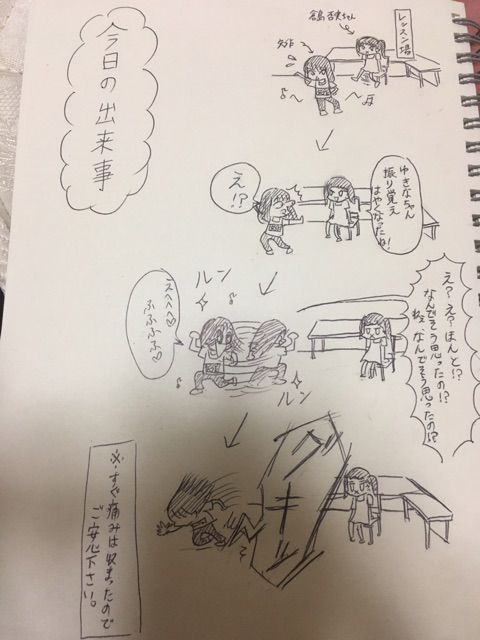 今日の出来事
レッスン場
ゆきなちゃん
振り覚え
はやくなったね!
え!?
え?え?ほんと!?
なんでそう思ったの!?
ねぇ、なんでそう思ったの!?
ルン
えへへへ♡
ふふふふ♡
ルン
グキッ
※すぐ痛みは収まったので
ご安心下さい。